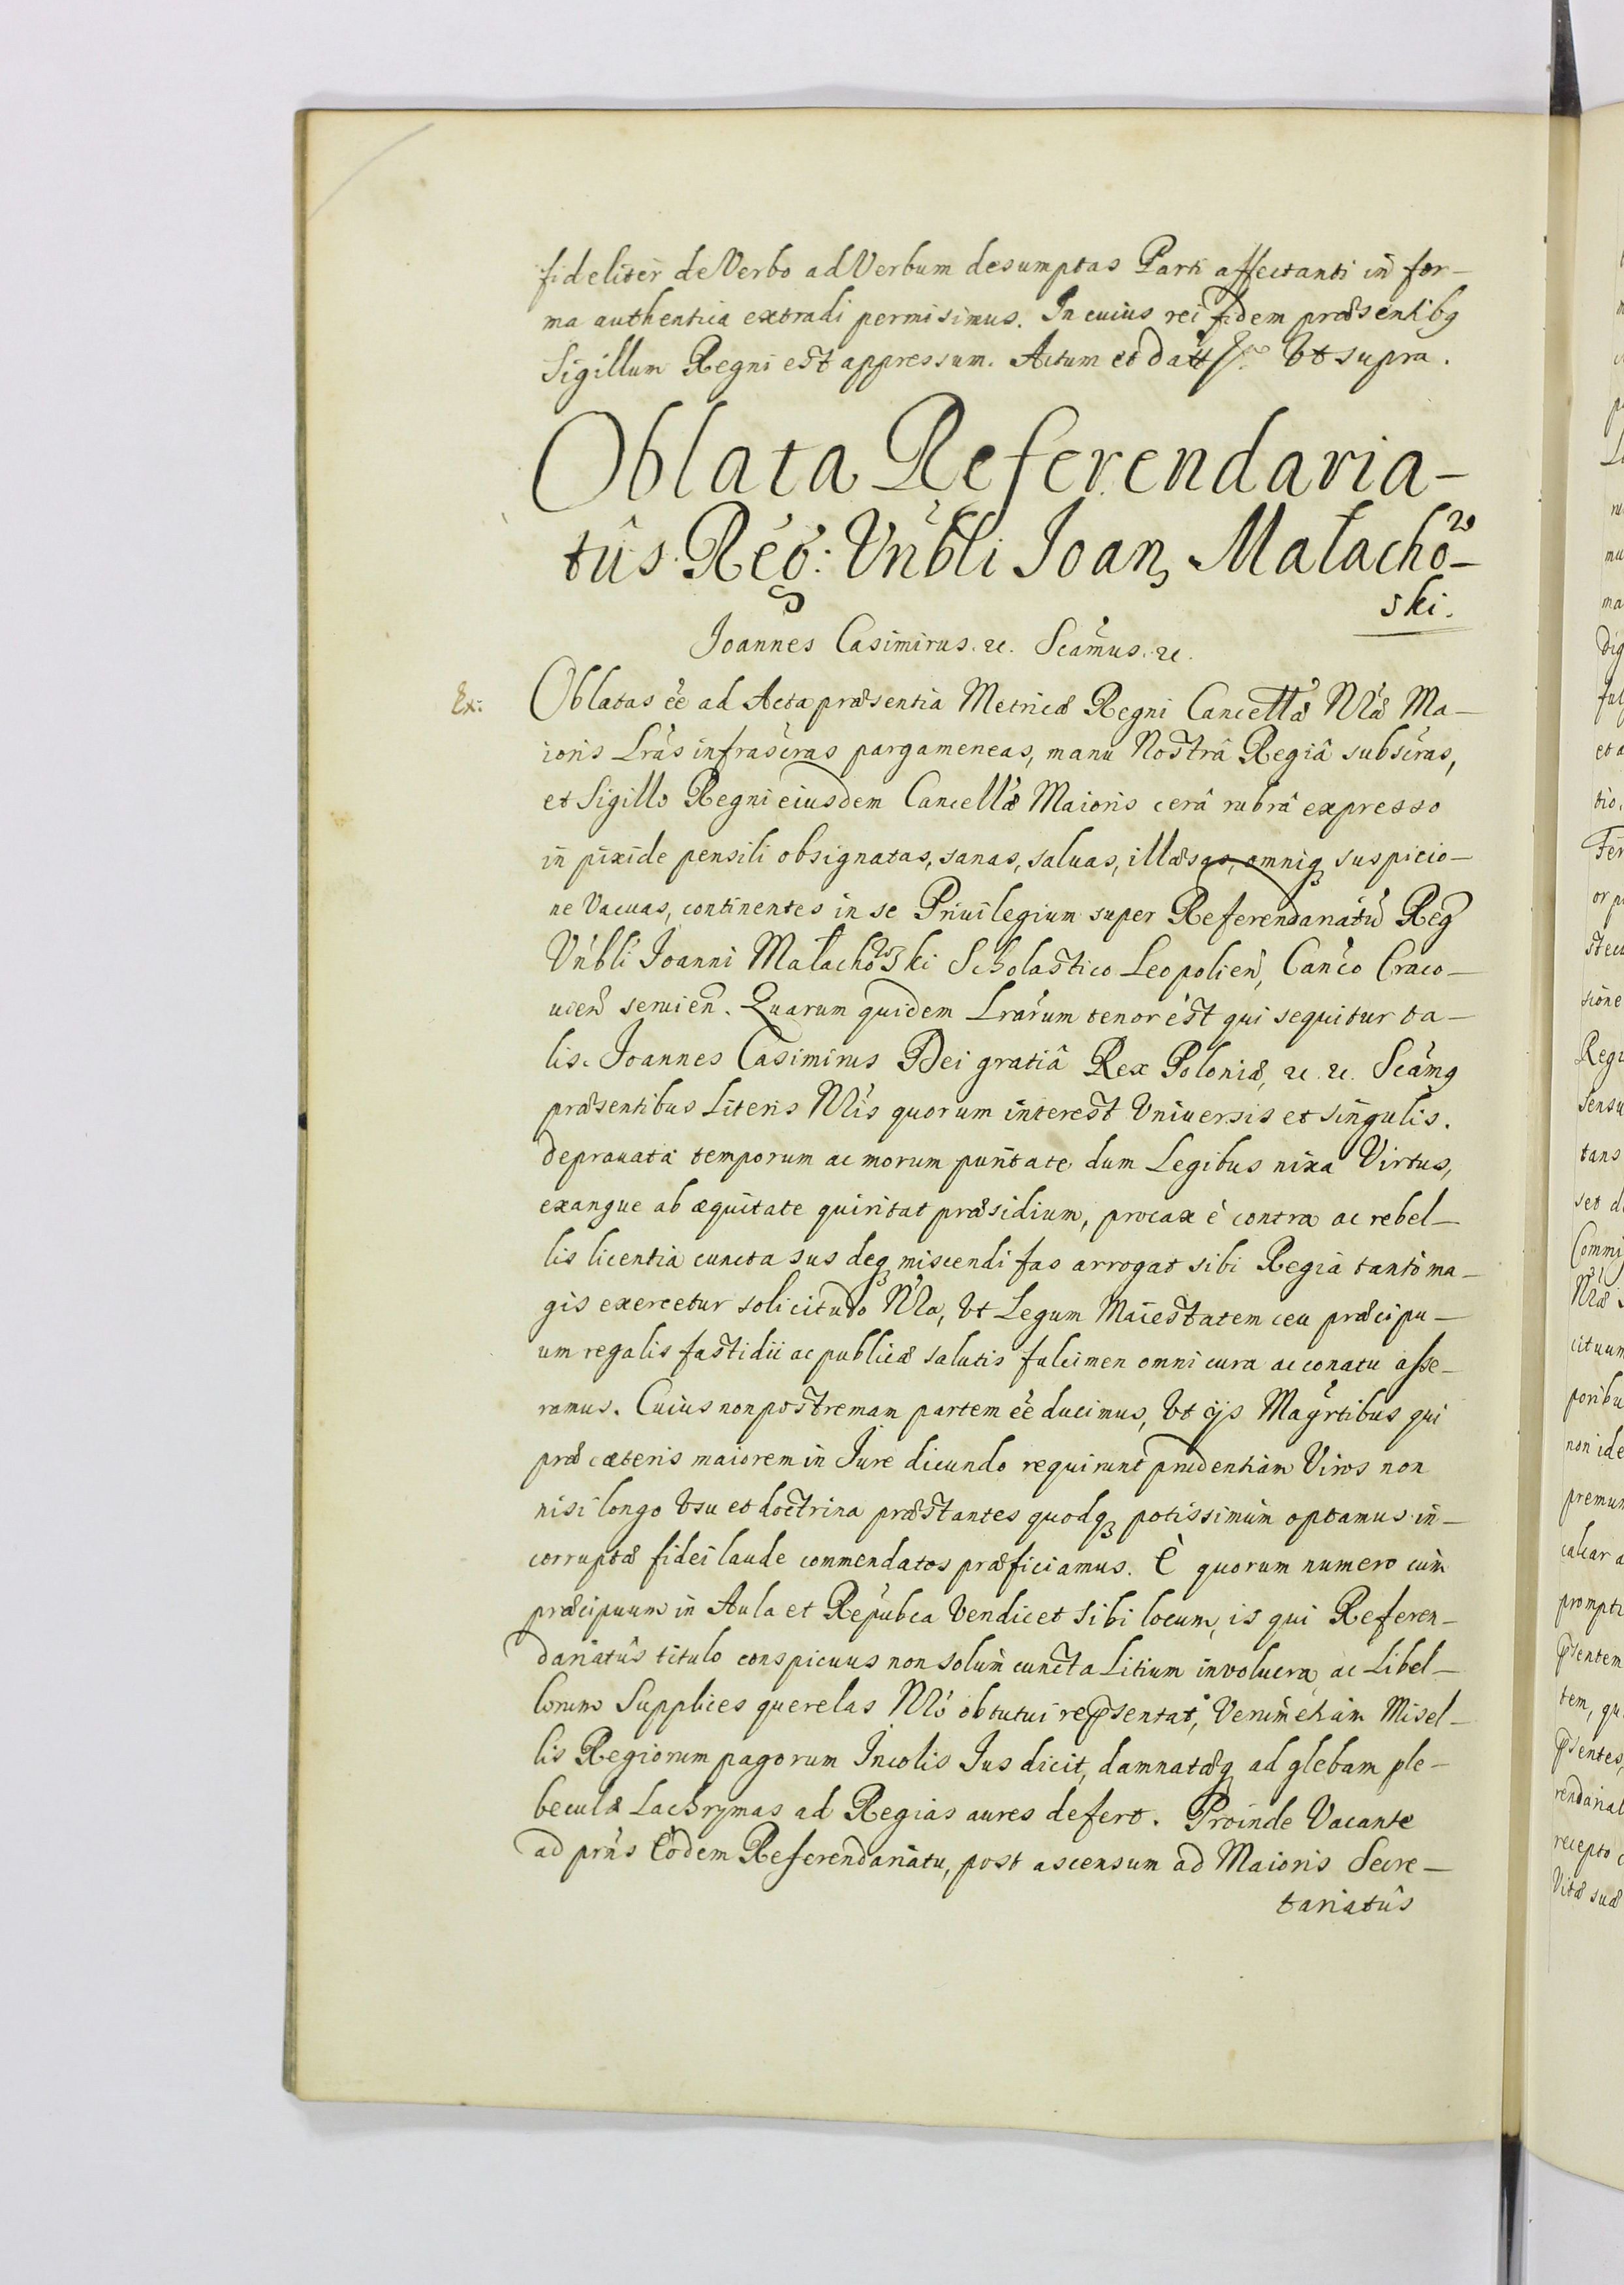 fideliter de Verbo ad Verbum desumptas Parti affectanti in for-
ma authentica extradi permisimus. In cuius rei fidem præsentibg
Sigillum Regni est appressum. Actum et datt Vt supra.
Oblata Referendaria-
tûs Reg: Vnbli Joan, Małachow-
ski.
Joannes Casimirus. &c. Scãmus. &c.
Ex: Oblatas ẽe ad Acta præsentia Metricæ Regni Cancellæ Nræ Ma-
ioris Lrãs infrascras pargameneas, manu Nostrâ Regiâ subscras,
et Sigillo Regni eiusdem Cancellæ Maioris cerâ rubrâ expresso
in pixide pensili obsignatas, sanas, saluas, illæsas, omniq suspicio-
ne Vacuas, continentes in se Priuilegium super Referendariatũ Reg
Vnbli Joanni Małachowski Scholastico Leopolien, Canco Craco-
uien seruien. Quarum quidem Lrarum tenor est qui sequitur ta-
lis. Joannes Casimirus Dei gratiâ Rex Poloniæ, &c. &c. Scãmg
præsentibus Literis Nris quorum interest Vniuersis et singulis.
deprauata temporum ac morum puritate dum Legibus nixa Virtus,
exangue ab æquitate quiritat præsidium, procax è contra ac rebel-
lis licentia cuncta sus deq miscendi fas arrogat sibi Regia tantò ma-
gis exercetur solicitudo Nra, Vt Legum Maiestatem ceu præcipu-
um regalis fastidii ac publicæ salutis fulcimen omni cura ac conatu asse-
ramus. Cuius non postremam partem ẽe ducimus, Vt ijs Magrtibus qui
præ cæteris maiorem in Jure dicundo requirunt prudentiam Viros non
nisi longo Vsu et doctrina præstantes quodq potissimùm optamus in-
corruptæ fidei laude commendatos præficiamus. È quorum numero cùm
præcipuum in Aula et Repubca Vendicet sibi locum, is qui Referen-
dariatûs titulo conspicuus non solùm cuncta Litium involucra, ac Libel-
lorum Supplices querelas Nro obtutui repsentat, Verùm etiàm Misel-
lis Regiorum pagorum Incolis Jus dicit, damnatæq ad glebam ple-
beculæ Lachrymas ad Regias aures defert. Proinde Vacante
ad prns Eodem Referendariatu, post ascensum ad Maioris Secre-
tariatûs